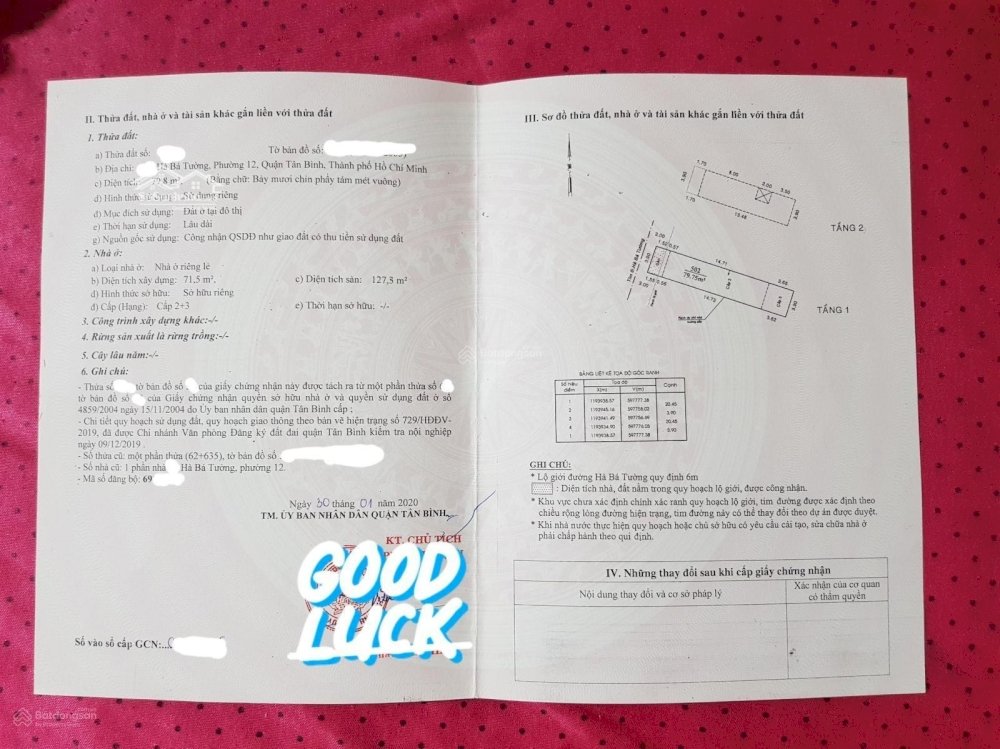 II. Thửa đất, nhà ở và tài sản khác gắn liền với thửa đất
1. Thửa đất:
a) Thửa đất số: Tờ bản đồ số:
b) Địa chỉ: Hà Bá Tường, Phường 12, Quận Tân Bình, Thành phố Hồ Chí Minh
c) Diện tích: 79,8 m² (Bằng chữ: Bảy mươi chín phẩy tám mét vuông)
d) Hình thức sử dụng: Sử dụng riêng
đ) Mục đích sử dụng: Đất ở tại đô thị
e) Thời hạn sử dụng: Lâu dài
g) Nguồn gốc sử dụng: Công nhận QSDĐ như giao đất có thu tiền sử dụng đất
2. Nhà ở:
a) Loại nhà ở: Nhà ở riêng lẻ
b) Diện tích xây dựng: 71,5 m². c) Diện tích sàn: 127,8 m²
d) Hình thức sở hữu: Sở hữu riêng
đ) Cấp (Hạng): Cấp 2+3 e) Thời hạn sở hữu: -/-
3. Công trình xây dựng khác:-/-
4. Rừng sản xuất là rừng trồng:-/-
5. Cây lâu năm:-/-
6. Ghi chú:
- Thửa số tờ bản đồ số của giấy chứng nhận này được tách ra từ một phần thửa số
tờ bản đồ số của Giấy chứng nhận quyền sở hữu nhà ở và quyền sử dụng đất ở số
4859/2004 ngày 15/11/2004 do Ủy ban nhân dân quận Tân Bình cấp ;
- Chi tiết quy hoạch sử dụng đất, quy hoạch giao thông theo bản vẽ hiện trạng số 729/HĐĐV-
2019, đã được Chi nhánh Văn phòng Đăng ký đất đai quận Tân Bình kiểm tra nội nghiệp
ngày 09/12/2019 .
- Số thửa cũ: một phần thửa (62+635), tờ bản đồ số
- Số nhà cũ: 1 phần nhà Hà Bá Tường, phường 12.
- Mã số đăng bộ: 69
Ngày 30 tháng 01 năm 2020
TM. ỦY BAN NHÂN DÂN QUẬN TÂN BÌNH
KT. CHỦ TỊCH
GOOD
LUCK
Số vào sổ cấp GCN:
III. Sơ đồ thửa đất, nhà ở và tài sản khác gắn liền với thửa đất
1.70
8.00
2.00
3.90
1.70
TẦNG 2
3.00
1.52 0.57
14.71
Tim đ.Hà Bá Tường
79.75m²
14.73
3.62
TẦNG 1
BẢNG LIỆT KÊ TỌA ĐỘ GÓC RANH
Số hiệu điểm Tọa độ Cạnh
X(m) Y(m)
1 1193938.57 597777.38
20.45
2 1193945.16 597758.02
3.90
3 1193941.49 597756.69
20.45
4 1193934.90 597776.05
3.90
1 1193938.57 597777.38
GHI CHÚ:
* Lộ giới đường Hà Bá Tường quy định 6m
: Diện tích nhà, đất nằm trong quy hoạch lộ giới, được công nhận.
* Khu vực chưa xác định chính xác ranh quy hoạch lộ giới, tim đường được xác định theo
chiều rộng lòng đường hiện trạng, tim đường này có thể thay đổi theo dự án được duyệt.
* Khi nhà nước thực hiện quy hoạch hoặc chủ sở hữu có yêu cầu cải tạo, sửa chữa nhà ở
phải chấp hành theo qui định.
IV. Những thay đổi sau khi cấp giấy chứng nhận
Nội dung thay đổi và cơ sở pháp lý Xác nhận của cơ quan
có thẩm quyền
Batdongsan
Batdongsan